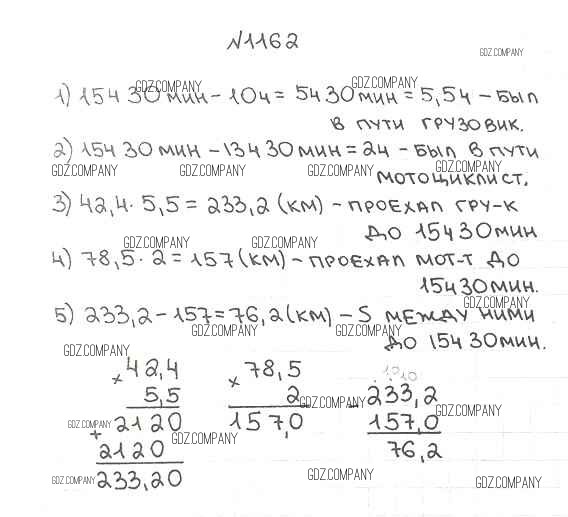 №1162
GDZ.COMPANY
GDZ.COMPANY GDZ.COMPANY
1) 15ч 30мин - 10ч = 5ч 30мин = 5,5ч - был
в пути грузовик.
2) 15ч 30мин - 13ч 30мин = 2ч - был в пути
GDZ.COMPANY GDZ.COMPANY GDZ.COMPANY GDZ.COMPANY
мотоциклист.
3) 42,4 · 5,5 = 233,2 (км) - проехал гру-к
до 15ч 30мин
GDZ.COMPANY GDZ.COMPANY
4) 78,5 · 2 = 157 (км) - проехал мот-т до
15ч 30мин.
GDZ.COMPANY
5) 233,2 - 157 = 76,2 (км) - S между ними
GDZ.COMPANY GDZ.COMPANY
до 15ч 30мин.
GDZ.COMPANY
42,4 78,5 10 10
× 5,5 × 2 - 233,2
GDZ.COMPANY GDZ.COMPANY
2120 157,0 157,0
GDZ.COMPANY GDZ.COMPANY
+ 2120 76,2
233,20
GDZ.COMPANY GDZ.COMPANY GDZ.COMPANY